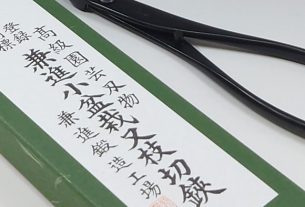 高級園芸刃物
登録
標
兼進小盆栽又枝切鋏
兼進鍛造工場